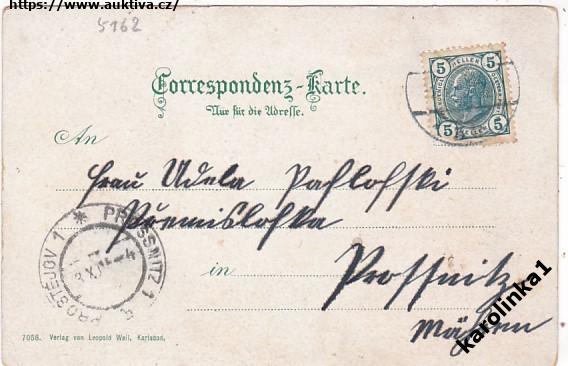 https://www.auktiva.cz/
5162
Correspondenz-Karte.
Nur für die Adresse.
5 HELLER 5
5 5
An
Frau Adela Pachlofski
Přemislofka
in Prossnitz
Mähren
PROSSNITZ 1
PROSTĚJOV 1
7058. Verlag von Leopold Weil, Karlsbad.
karolinka1